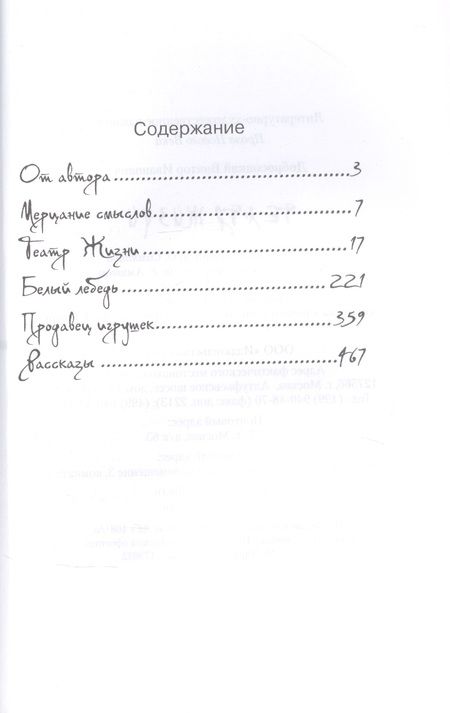 Содержание
От автора....................................................3
Мерцание смыслов....................................................7
Театр Жизни....................................................17
Белый лебедь....................................................221
Продавец игрушек....................................................359
Рассказы....................................................467